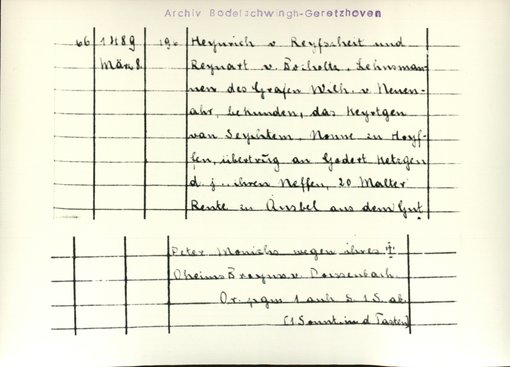 Archiv Bodelschwingh-Geretzhoven
66 1489 196 Heynrich v. Reyfscheit und
März 8. Reynart v. Bocholtz, Lehnsman-
nen des Grafen Wilh. v. Neuen-
ahr, bekunden, das Keyrtgen
van Seychtem, Nonne zu Hoyf-
fen, übertrug an Godert Ketzgen
d. j. ihren Neffen, 20 Malter
Rente zu Ansbel aus dem Gut
Peter Monichs wegen ihres †
Oheims v. Dorssenbach.
Or. pgm 1 anh. S. 1 S. ab.
(1 Sonnt. in d Fasten)